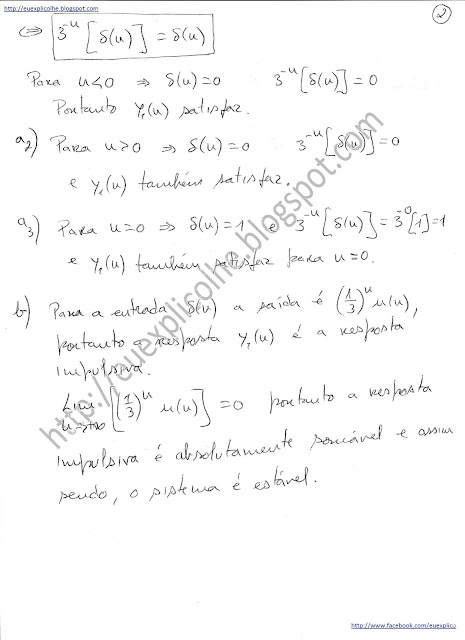 http://euexplicolhe.blogspot.com
2
⇒ 3⁻ⁿ [δ(n)] = δ(n)
Para n<0 ⇒ δ(n)=0 3⁻ⁿ[δ(n)] = 0
Portanto y₁(n) satisfaz.
a₂) Para n>0 ⇒ δ(n)=0 3⁻ⁿ[δ(n)]=0
e y₁(n) também satisfaz.
a₃) Para n=0 ⇒ δ(n)=1 e 3⁻ⁿ[δ(n)]=3⁻⁰[1]=1
e y₁(n) também satisfaz para n=0.
b) Para a entrada δ(n) a saída é (1/3)ⁿ u(n),
portanto a resposta y₁(n) é a resposta
impulsiva.
Lim n→+∞ [(1/3)ⁿ u(n)] = 0 portanto a resposta
impulsiva é absolutamente somável e assim
sendo, o sistema é estável.
http://euexplicolhe.blogspot.com
http://www.facebook.com/euexplica